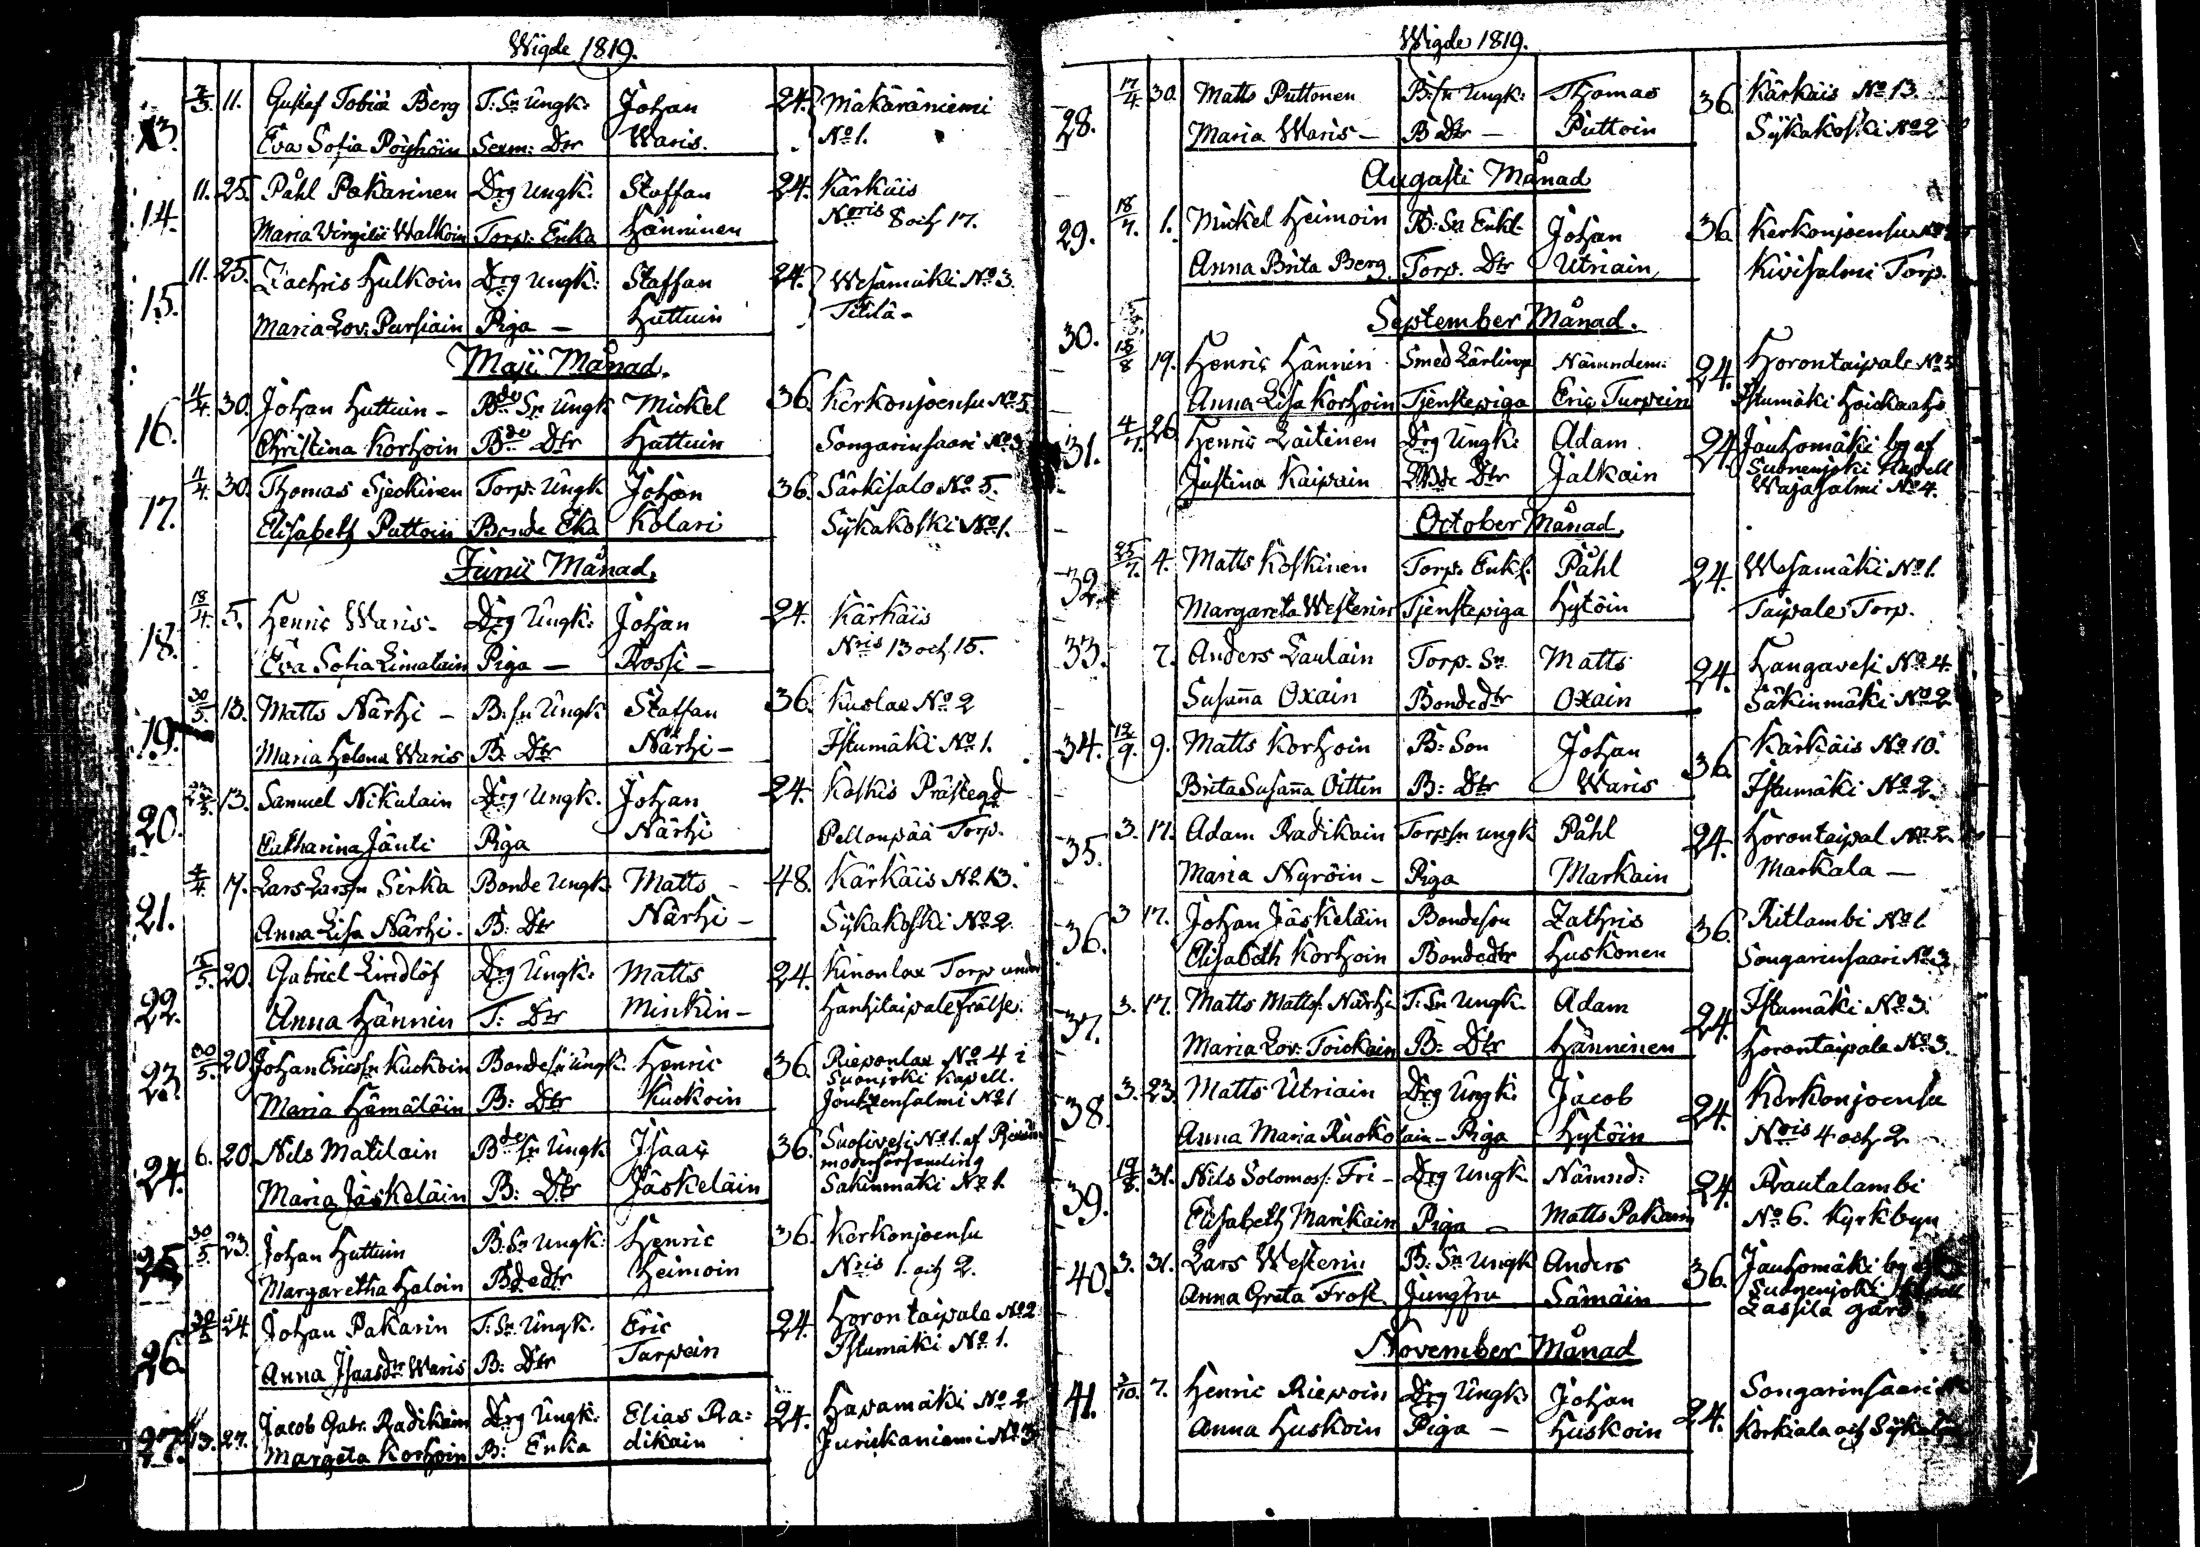 Wigde 1819.
13. 7/3 11. Gustaf Tobiæ Berg T: Sn Ungk: Johan 24. Mäkäräniemi
Eva Sofia Pöyhöin Sexm: Dtr Waris. No 1.
14. 11. 25. Påhl Pakarinen Drg Ungk: Staffan 24. Kärkäis
Maria Virgilii Walkoin Torp: Enka Hänninen Noris 8 och 17.
15. 11. 25. Zachris Hulkoin Drg Ungk: Staffan 24. Wesamäki No 3.
Maria Lov: Pursiain Piga – Huttuin Titilä –
Maji Månad.
16. 4/4 30. Johan Huttuin – Bde Sn Ungk Mickel 36. Kerkonjoensu No 5.
Christina Korhoin Bde Dtr Huttuin Songarinsaari No 3
17. 4/4 30. Thomas Sjeckinen Torp. Ungk Johan 36. Särkisalo No 5.
Elisabeth Puttoin Bonde Eka Kolari Sykäkoski No 1.
Junii Månad.
18. 18/4 5. Henric Waris – Drg Ungk: Johan 24. Kärkäis
Eva Sofia Limatain Piga – Rossi – Nris 13 och 15.
19. 30/5 13. Matts Närhi – B: sn Ungk Staffan 36. Kuslax No 2
Maria Helena Waris B: Dtr Närhi – Istumäki No 1.
20. 13. Samuel Nikulain Drg Ungk. Johan 24. Koskis Prästegd
Catharina Jänti Piga Närhi Pellonpää Torp.
21. 4/4 17. Lars Larsn Sirka Bonde Ungk Matts – 48. Kärkäis No 13.
Anna Lisa Närhi – B: Dtr Närhi – Sykäkoski No 2.
22. 15/5 20. Gabriel Lindlöf Drg Ungk: Matts 24. Kinonlax Torp under
Anna Hännin T: Dtr Minkin – Hanhitaipale Frälse.
23. 30/5 20. Johan Ericsn Kuckoin Bondesn Ungk. Henric 36. Rieponlax No 4 i
Suonjoki Kapell.
Maria Hämäläin B: Dtr Kuckoin Jouhtensalmi No 1
24. 6. 20. Nils Matilain Bde sn Ungk Isaac 36. Suosivesi No 1. af
moderförsamling
Maria Jäskeläin B: Dtr Jäskeläin Säkinmäki No 1.
25. 30/5 23. Johan Huttuin B: Sn Ungk: Henric 36. Kerkonjoensu
Margaretha Haloin Bdedtr Heimoin Nris 1. och 2.
26. 30/5 24. Johan Pakarin T: Sn Ungk. Eric 24. Horontaipale No 2
Anna Isaasdtr Waris B: Dtr Tarvain Istumäki No 1.
27. 13. 27. Jacob Gabr. Radikain Drg Ungk. Elias Ra= 24. Hapamäki No 2.
Margeta Korhoin B: Enka dikain Jurickaniemi No 3.
Wigde 1819.
28. 17/4 30. Matts Puttonen B: sn Ungk: Thomas 36. Kärkäis No 13.
Maria Waris – B Dtr – Puttoin Sykäkoski No 2
Augusti Månad
29. 18/7. 1. Mickel Heimoin B: Sn Enkl. Johan 36. Kerkonjoensu
Anna Brita Berg Torp. Dtr Utriain Kivisalmi Torp.
September Månad.
30. 15/8 19. Henric Hännin Smed Lärling Nämndem: 24. Horontaipale No 3
Anna Lisa Korhoin Tjenstepiga Eric Turpein Istumäki
31. 4/7. 26. Henric Laitinen Drg Ungk: Adam 24. Jauhomäki by af
Suonenjoki Kapell
Justina Kaipain Bde Dtr Jalkain Wajasalmi No 4.
October Månad.
32. 25/7. 4. Matts Koskinen Torp. Enkl. Påhl 24. Wesamäki No 1.
Margareta Westerin Tjenstepiga Hytöin Taipale Torp.
33. 7. Anders Laulain Torp. Sn Matts 24. Hangavesi No 4.
Susaña Oxain Bondedtr Oxain Säkinmäki No 2
34. 12/9. 9. Matts Korhoin B: Son Johan 36. Kärkäis No 10.
Brita Susaña Oitten B: Dtr Waris Istumäki No 2.
35. 3. 17. Adam Radikain Torpsn Ungk Påhl 24. Horontaipal No 2.
Maria Nyröin – Piga Markain Markala –
36. 3 17. Johan Jäskeläin Bondeson Zachris 36. Ritlambi No 1.
Elisabeth Korhoin Bondedtr Huskonen Songarinsaari No 3
37. 3. 17. Matts Mattss. Närhi T: Sn Ungk. Adam 24. Istumäki No 3.
Maria Lov: Toickain B: Dtr Hänninen Horontaipale No 3.
38. 3. 23. Matts Utriain Drg Ungk: Jacob 24. Kerkonjoensu
Anna Maria Ruokolain – Piga Hytöin Nris 4 och 2
39. 19/8. 31. Nils Solomoss: Fri – Drg Ungk Nämnd: 24. Rautalambi
Elisabeth Marikain Piga – Matts Pakarin No 6. Kyrkbyn
40. 3. 31. Lars Westerin B: Sn Ungk Anders 36. Jauhomäki by
Suonenjoki Kapell
Anna Greta Frost Jungfru Sämäin Lassila gård
November Månad
41. 3/10. 7. Henric Riepoin Drg Ungk Johan 24. Songarinsaari
Anna Huskoin Piga – Huskoin Korkiala och